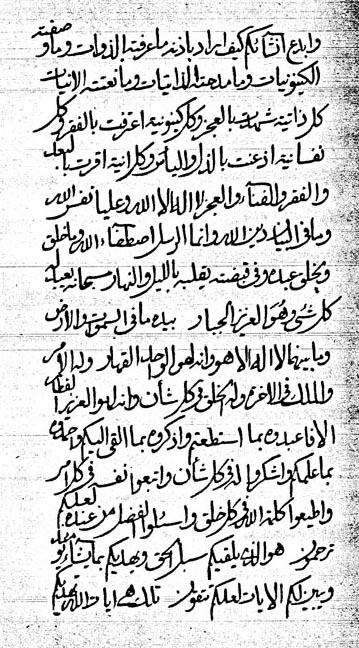 وابدع انشائكم كيف اراد باذنه ما عرفته الذوات وما وصفته
الكينونيات وما مدحته الذاتيات وما نعتته الانيات
كل ذاتية شهدت بالعجز وكل كينونية اعرفت بالفقر وكل
نفسانية اذعنت بالذل والياس وكل انية اقرت بالعجز
والفقر والفناء والعجز لا اله الا الله وعليا نفس الله
وما في البلاد دين الله وانما الرسل اصطفاء الله وما خلق
ويخلق عبده وفي قبضته يقلبه بالليل والنهار سبحانه يعبده
كل شيء وهو العزيز الجبار بيده ما في السموات والارض
وما بينهما لا اله الا هو وانه لهو الواحد القهار وله الامر
والملك في الاخرة وله الخلق في كل شأن وانه لهو العزيز
الا فاعبدوه بما استطعتم واذكروه بما القى اليكم واحمدوه
بما علمكم واشكروا له في كل شأن واتبعوا نفسه في كل امر
واطيعوا كلمة الله في كل خلق واسئلوا الفضل من عنده لعلكم
ترحمون هو الذي يلقيكم سبل الحق ويهديكم بما
ويبين لكم الايات لعلكم تتقون تلك هي ايات الله يهديكم